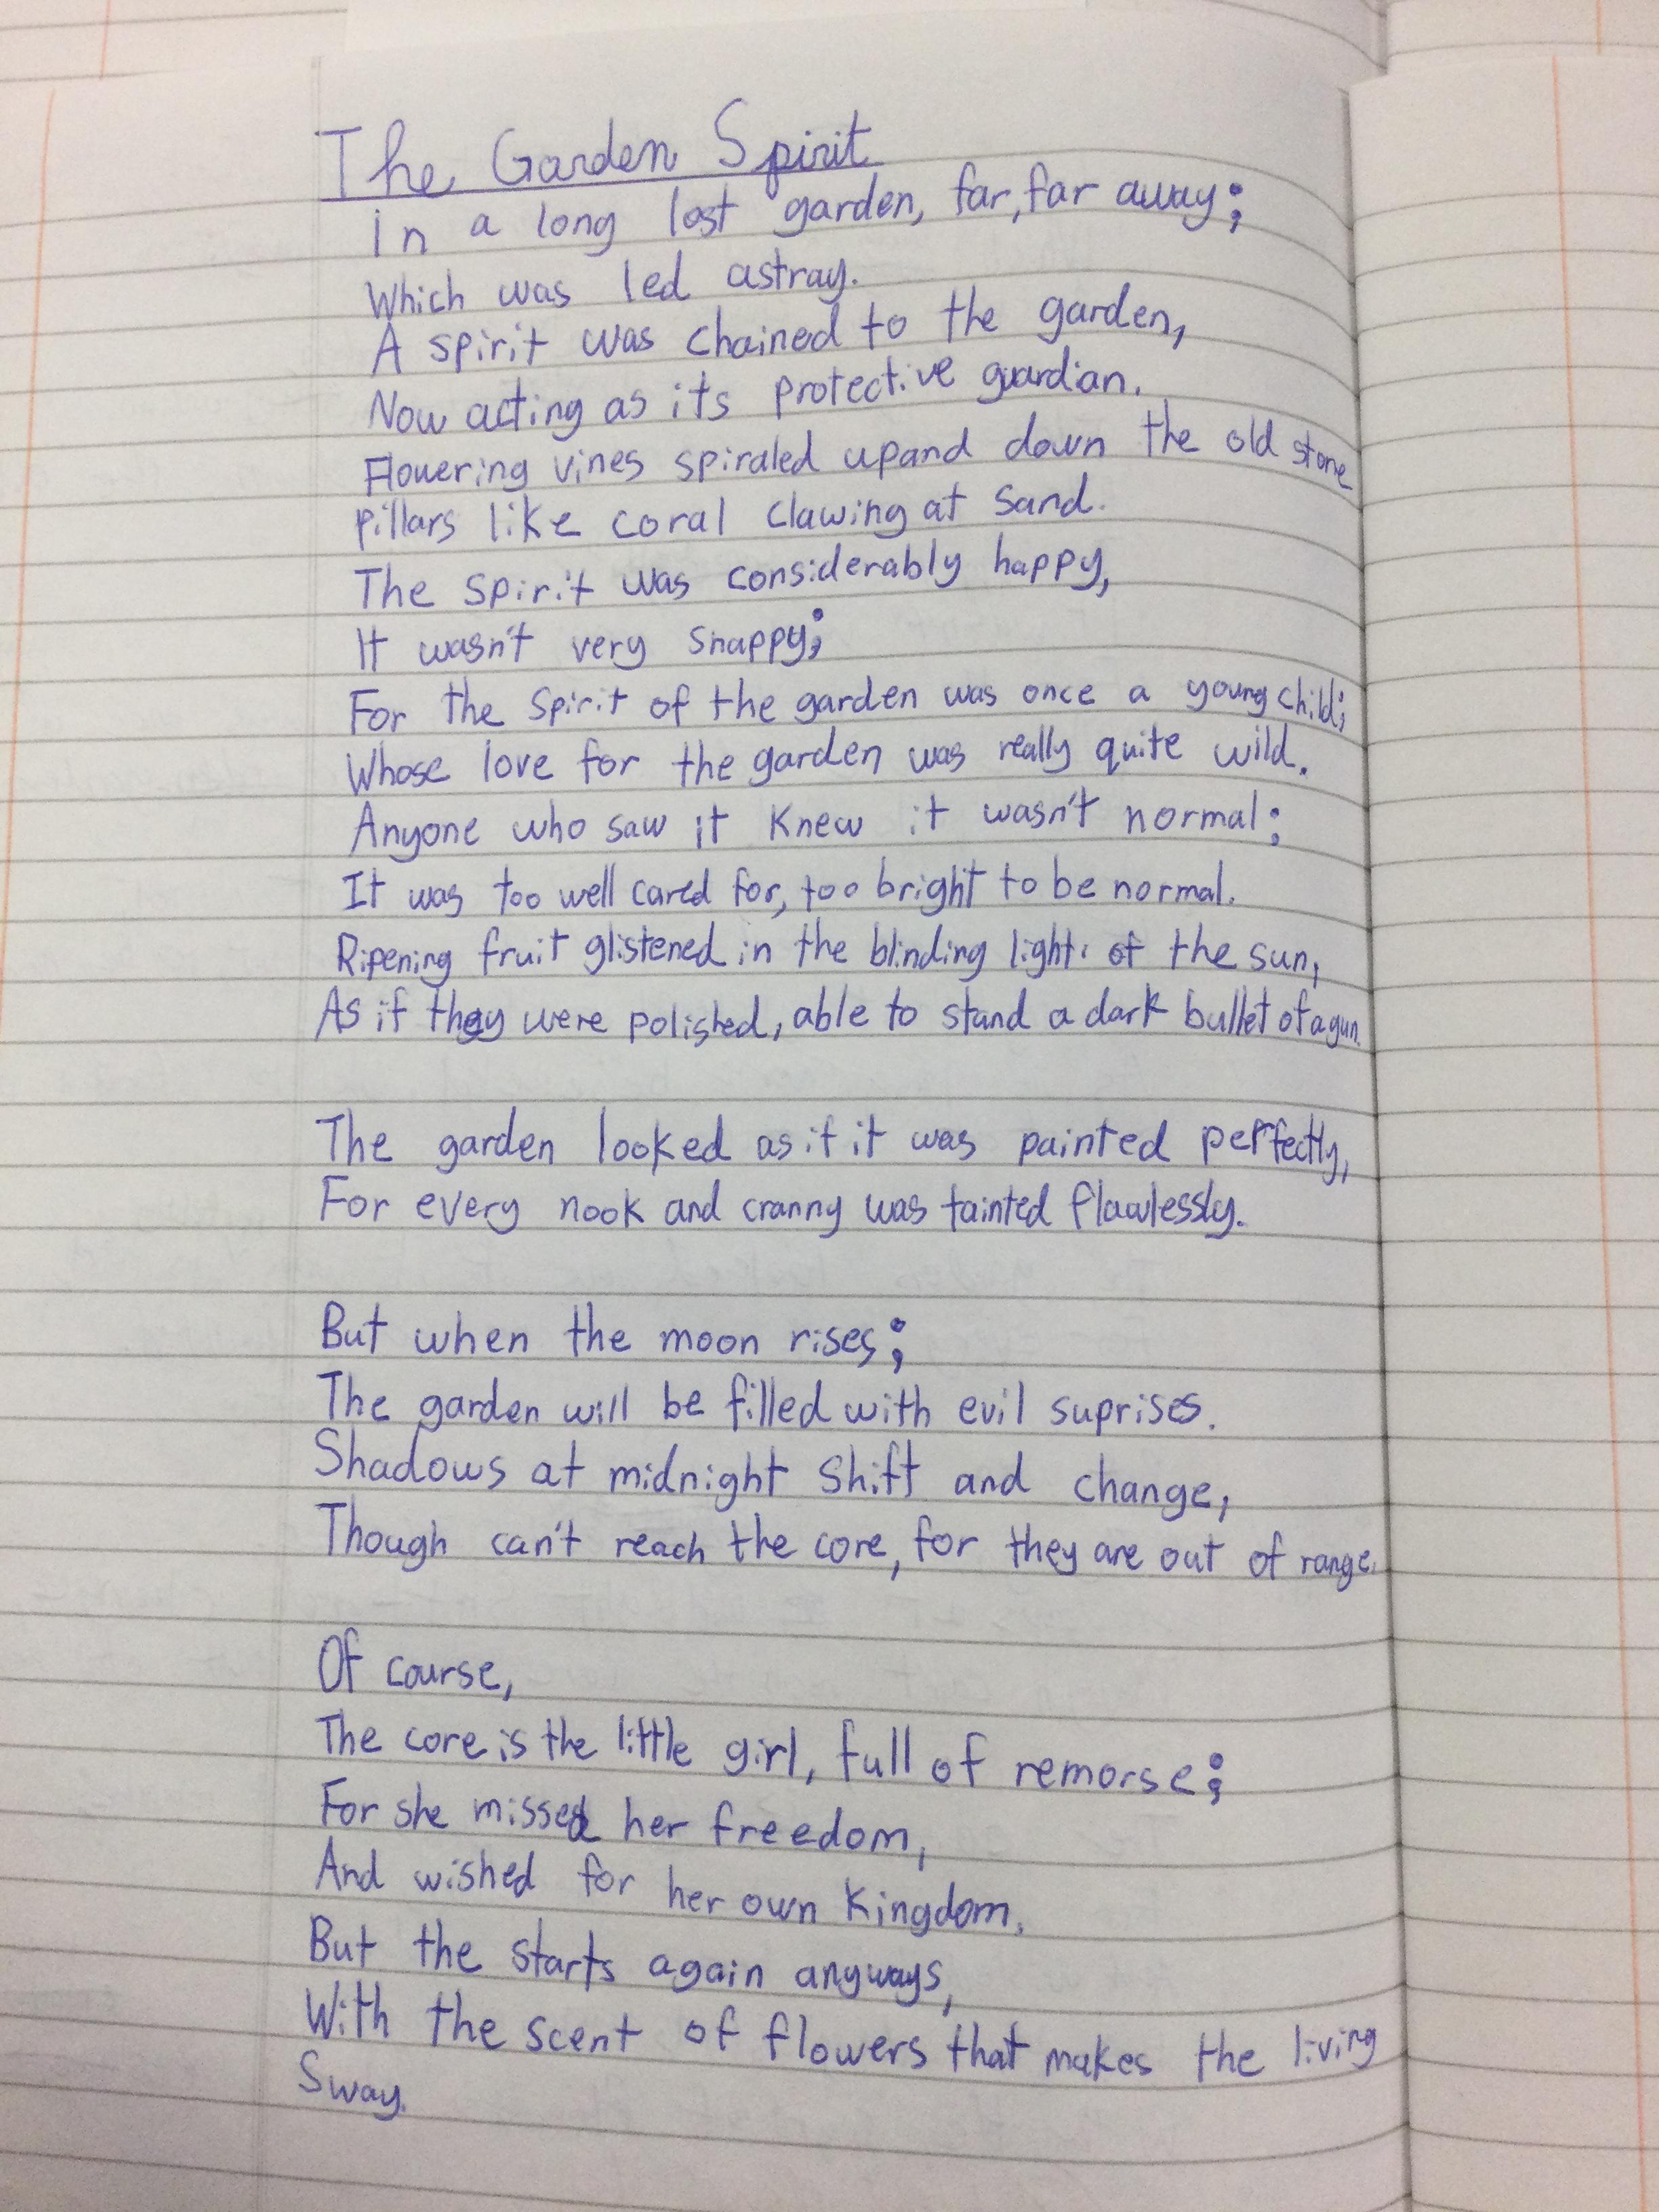 The Garden Spirit
In a long lost garden, far, far away;
Which was led astray.
A spirit was chained to the garden,
Now acting as its protective guardian.
Flowering vines spiraled up and down the old stone
pillars like coral clawing at sand.
The spirit was considerably happy,
It wasn't very snappy;
For the spirit of the garden was once a young child;
Whose love for the garden was really quite wild.
Anyone who saw it knew it wasn't normal;
It was too well cared for, too bright to be normal.
Ripening fruit glistened in the blinding light of the sun,
As if they were polished, able to stand a dark bullet of a gun.
The garden looked as if it was painted perfectly,
For every nook and cranny was tainted flawlessly.
But when the moon rises;
The garden will be filled with evil suprises.
Shadows at midnight shift and change,
Though can't reach the core, for they are out of range.
Of course,
The core is the little girl, full of remorse;
For she missed her freedom,
And wished for her own kingdom.
But the starts again anyways,
With the scent of flowers that makes the living
Sway.